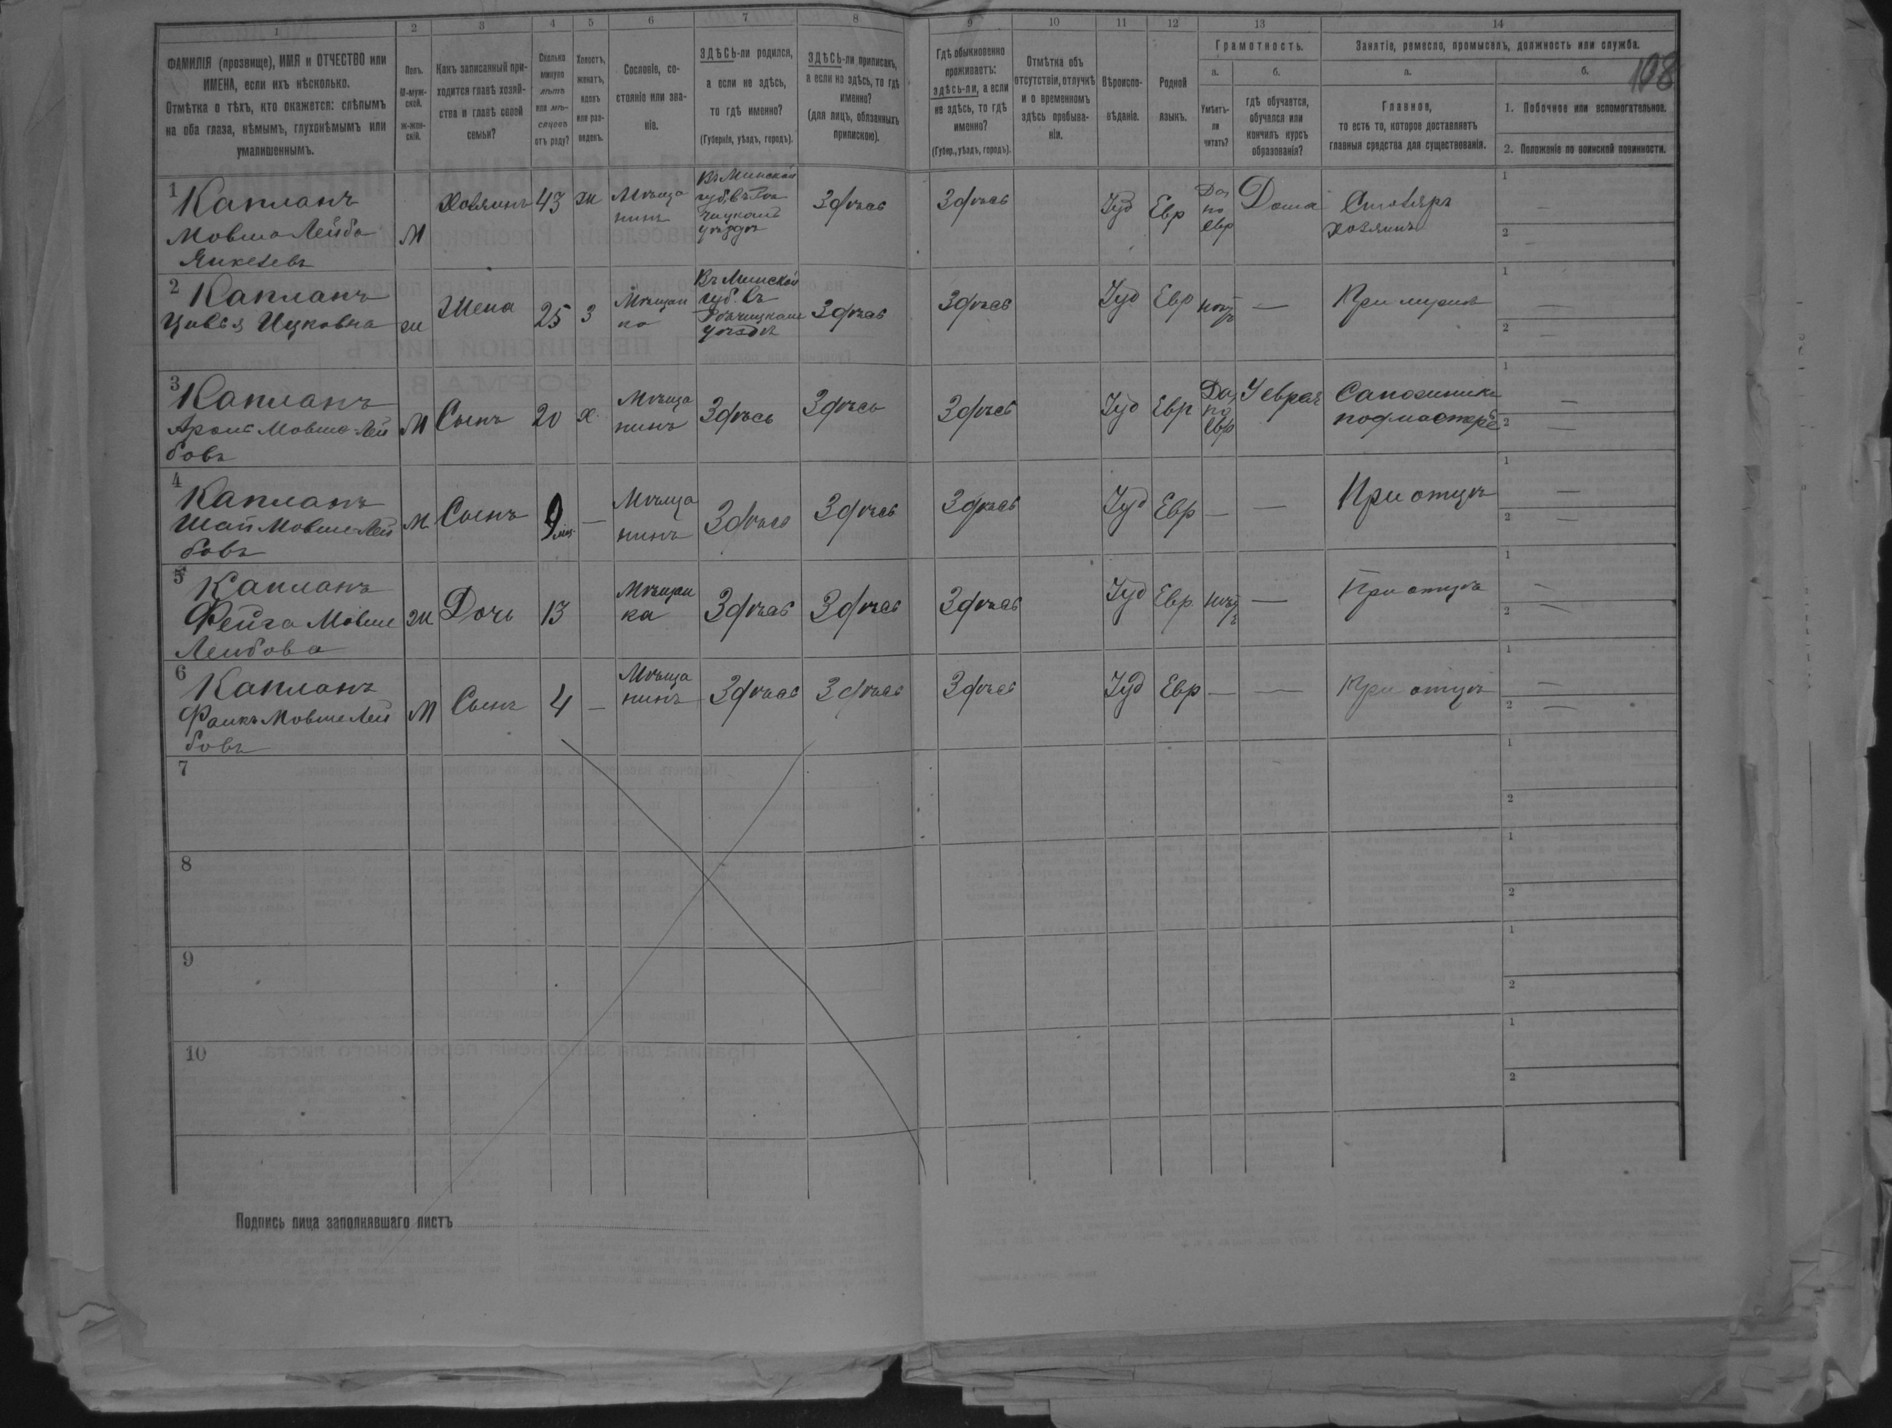 108
1 2 3 4 5 6 7 8 9 10 11 12 13 14
ФАМИЛІЯ (прозвище), ИМЯ и ОТЧЕСТВО или
ИМЕНА, если ихъ нѣсколько.
Отмѣтка о тѣхъ, кто окажется: слѣпымъ
на оба глаза, нѣмымъ, глухонѣмымъ или
умалишеннымъ.
Полъ.
М-муж-
ской.
ж-жен-
скій.
Какъ записанный при-
ходится главѣ хозяй-
ства и главѣ своей
семьи?
Сколько
минуло
лѣтъ
или мѣ-
сяцевъ
отъ роду?
Холостъ,
женатъ,
вдовъ
или раз-
веденъ.
Сословіе, со-
стояніе или зва-
ніе.
ЗДѢСЬ-ли родился,
а если не здѣсь,
то гдѣ именно?
(Губернія, уѣздъ, городъ).
ЗДѢСЬ-ли приписанъ,
а если не здѣсь, то гдѣ
именно?
(для лицъ, обязанныхъ
припискою).
Гдѣ обыкновенно
проживаетъ:
здѣсь-ли, а если
не здѣсь, то гдѣ
именно?
(Губер., уѣздъ, городъ).
Отмѣтка объ
отсутствіи, отлучкѣ
и о временномъ
здѣсь пребыва-
ніи.
Вѣроиспо-
вѣданіе.
Родной
языкъ.
Грамотность.
а.
Умѣетъ-
ли
читать?
б.
гдѣ обучается,
обучался или
кончилъ курсъ
образованія?
Занятіе, ремесло, промыселъ, должность или служба.
а.
Главное,
то есть то, которое доставляетъ
главныя средства для существованія.
б.
1. Побочное или вспомогательное.
2. Положеніе по воинской повинности.
1 Капланъ
Мовша Лейба
Янкелевъ
М
Хозяинъ
43
ж
Мѣща
нинъ
Въ Минской
губ. въ Рѣ
чицкомъ
уѣздѣ
Здѣсь
Здѣсь
Іуд
Евр
Да
по
евр
Дома
Столяръ
хозяинъ
1 —
2
2 Капланъ
Цивья Ицковна
ж
Жена
25
З
Мѣщан
ка
Въ Минской
губ. въ
Рѣчицкомъ
уѣздѣ
Здѣсь
Здѣсь
Іуд
Евр
нѣтъ
—
При мужѣ
1 —
2 —
3 Капланъ
Аронъ Мовше Лей
бовъ
М
Сынъ
20
х.
Мѣща
нинъ
Здѣсь
Здѣсь
Здѣсь
Іуд
Евр
Да
по
евр
У еврея
Сапожникъ
подмастерье
1 —
2 —
4 Капланъ
Шай Мовше Лей
бовъ
М
Сынъ
9 мѣс.
—
Мѣща
нинъ
Здѣсь
Здѣсь
Здѣсь
Іуд
Евр
—
—
При отцѣ
1 —
2 —
5 Капланъ
Фейга Мовше
Лейбова
ж
Дочь
13
Мѣщан
ка
Здѣсь
Здѣсь
Здѣсь
Іуд
Евр
нѣтъ
—
При отцѣ
1 —
2 —
6 Капланъ
Мовше Лей
бовъ
М
Сынъ
4
—
Мѣща
нинъ
Здѣсь
Здѣсь
Здѣсь
Іуд
Евр
—
—
При отцѣ
1 —
2 —
7
1
2
8
1
2
9
1
2
10
1
2
Подпись лица заполнявшаго листъ